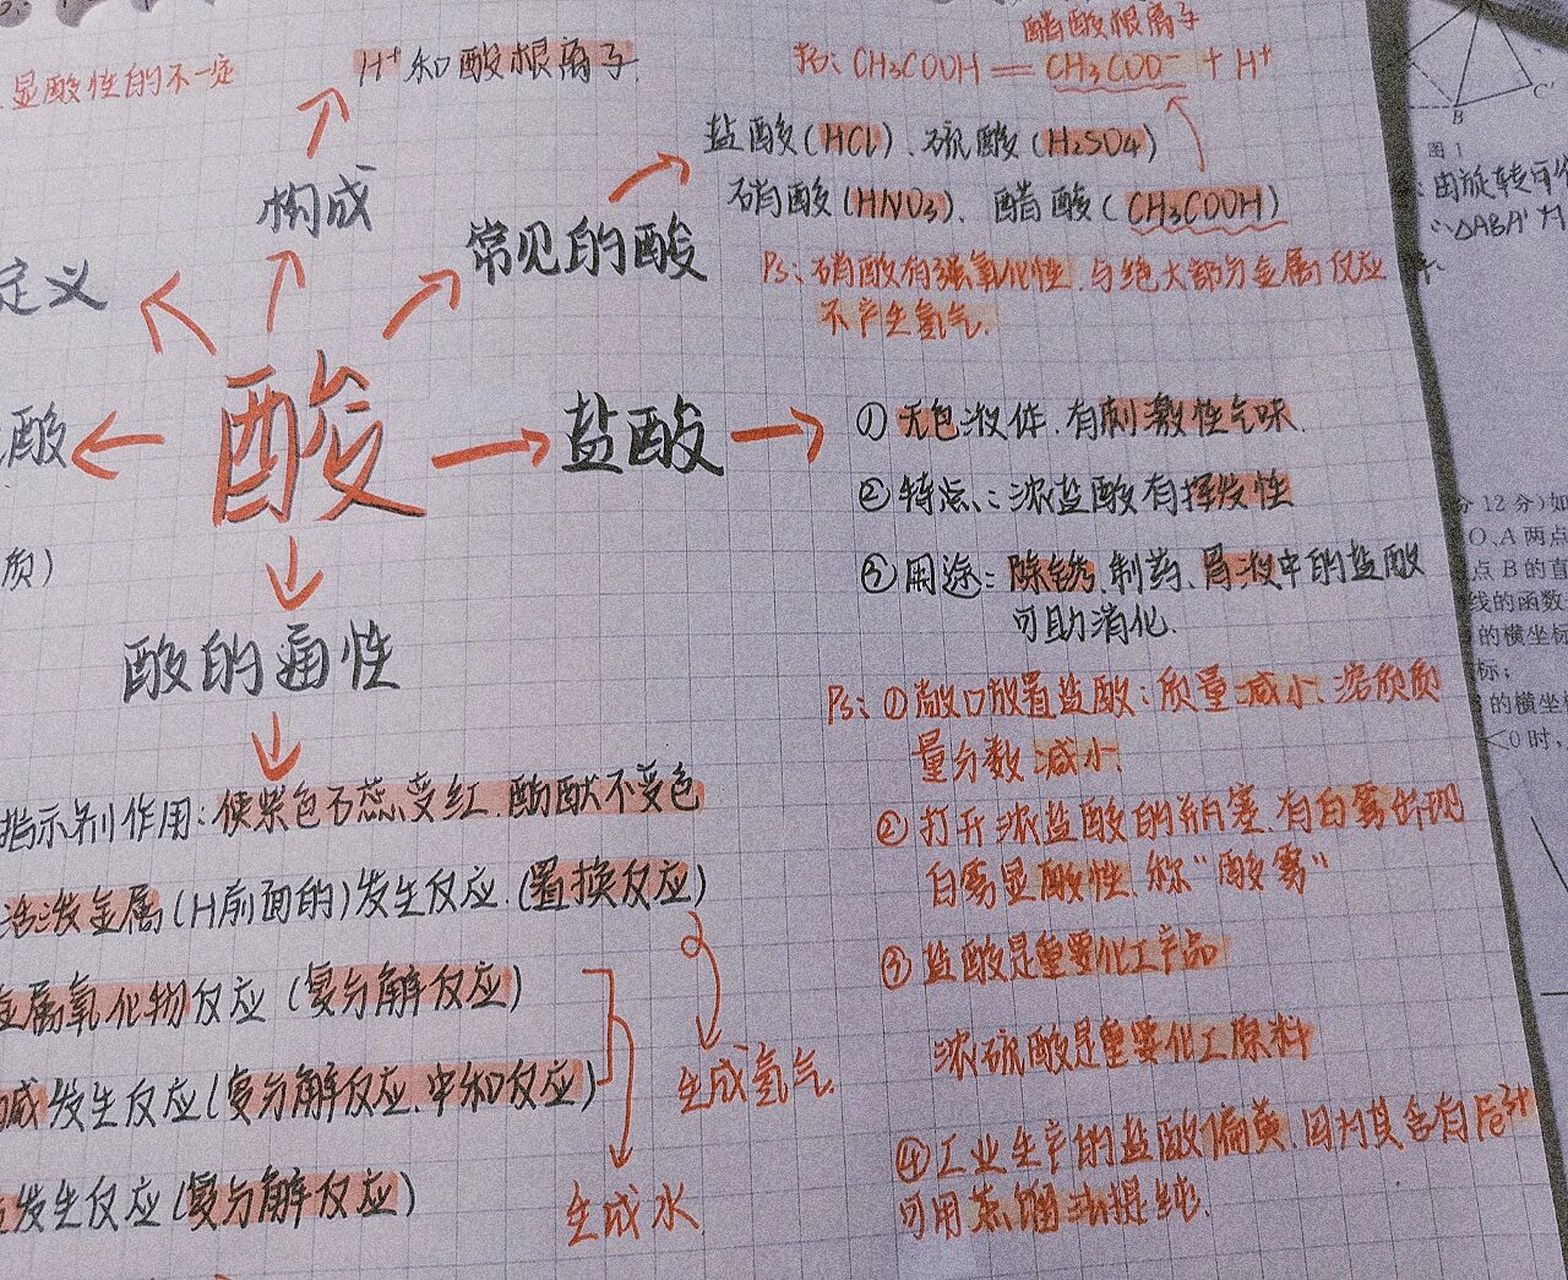 显酸性的不一定
H⁺和酸根离子
醋酸根离子
CH₃COOH = CH₃COO⁻ + H⁺
构成
盐酸(HCl)、硫酸(H₂SO₄)
硝酸(HNO₃)、醋酸(CH₃COOH)
常见的酸
Ps:硝酸有强氧化性.与绝大部分金属反应
不产生氢气.
定义
酸
酸
盐酸
①无色液体.有刺激性气味.
②特点:浓盐酸有挥发性
③用途:除锈、制药、胃液中的盐酸
可助消化.
质)
酸的通性
Ps:①敞口放置盐酸:质量减小、溶质质
量分数减小.
②打开浓盐酸的瓶塞.有白雾出现
白雾显酸性、称“酸雾”
③盐酸是重要化工产品
浓硫酸是重要化工原料
④工业生产的盐酸偏黄.因为其含有Fe³⁺
可用蒸馏法提纯.
指示剂作用:使紫色石蕊变红.酚酞不变色
活泼金属(H前面的)发生反应.(置换反应)
金属氧化物反应(复分解反应)
碱发生反应(复分解反应.中和反应)
生成氢气.
发生反应(复分解反应)
生成水
C'
B
图1
由旋转可
∴△ABA'
分12分)如
O、A两点
点B的直
线的函数
的横坐标
标;
的横坐
<0时,